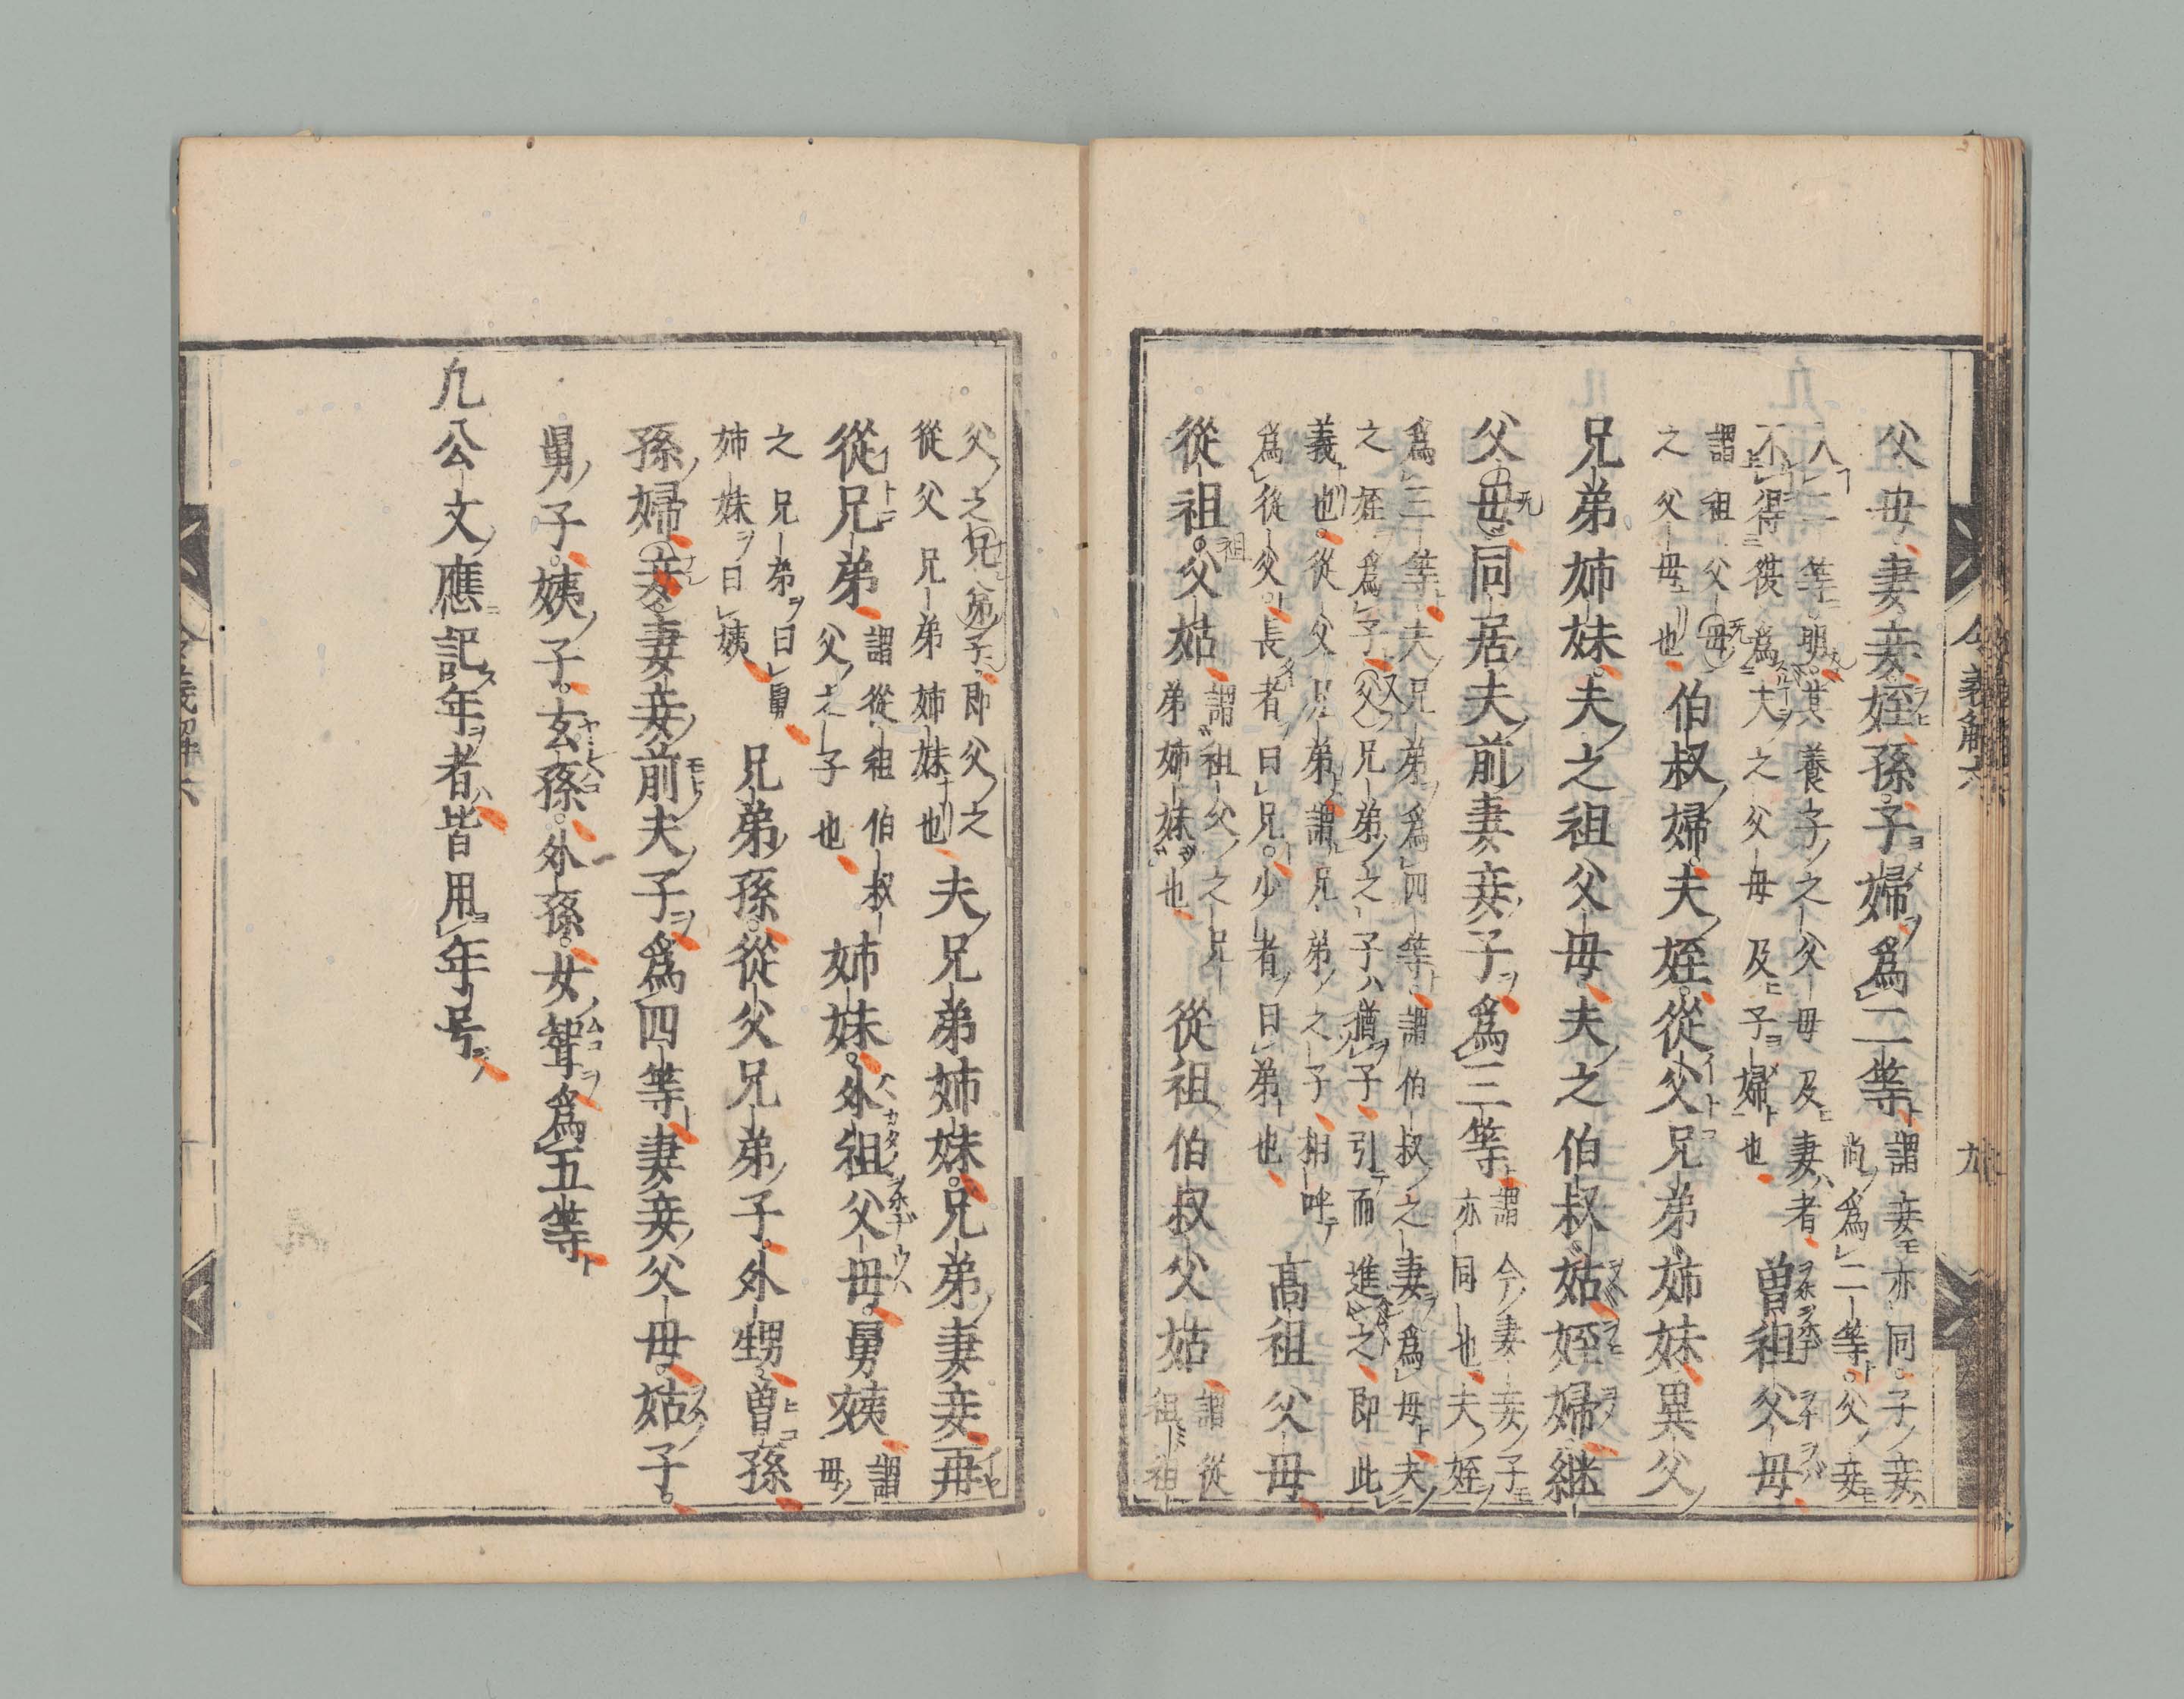 父母妻妾姪孫。子婦爲二等
謂妾亦同。子妾
尚爲二等。父妾
入二等。明其養子之父母及妻者
不得從爲夫之父母及子婦也
曽祖父母
謂祖父母
之父母也
伯叔婦夫姪從父兄弟姉妹異父
兄弟姉妹。夫之祖父母夫之伯叔姑姪婦継
父母同居夫前妻妾子爲三等
謂今妻妾子
亦同也夫姪
爲三等夫兄弟爲四等。謂伯叔之妻爲母夫
之姪爲子父兄弟之子猶子引而進之即此
義也。從父兄弟謂兄弟之子相呼
爲從父長者曰兄。少者曰弟也
高祖父母
從祖。祖父姑
謂祖父之兄
弟姉妹也
從祖伯叔父姑
謂從
祖祖
父之兄弟子即父之
從父兄弟姉妹也
夫兄弟姉妹。兄弟妻妾再
從兄弟
謂從祖伯叔
父之子也
姉妹。外祖父母。舅姨
謂母
之兄弟曰舅
姉妹曰姨
兄弟孫。從父兄弟子。外甥。曽孫
孫婦妾妻妾前夫子爲四等妻妾父母。姑子。
舅子。姨子。玄孫。外孫。女聟爲五等
凡公文應記年者皆用年号
令義解六
九